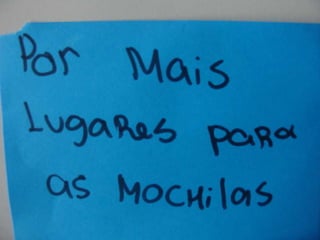 Por Mais
Lugares para
as Mochilas